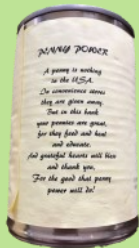 PENNY POWER
A penny is nothing
in the USA.
In convenience stores
they are given away.
But in this bank
your pennies are great,
for they feed and heal
and educate.
And grateful hearts will live
and thank you,
For the good that penny
power will do!